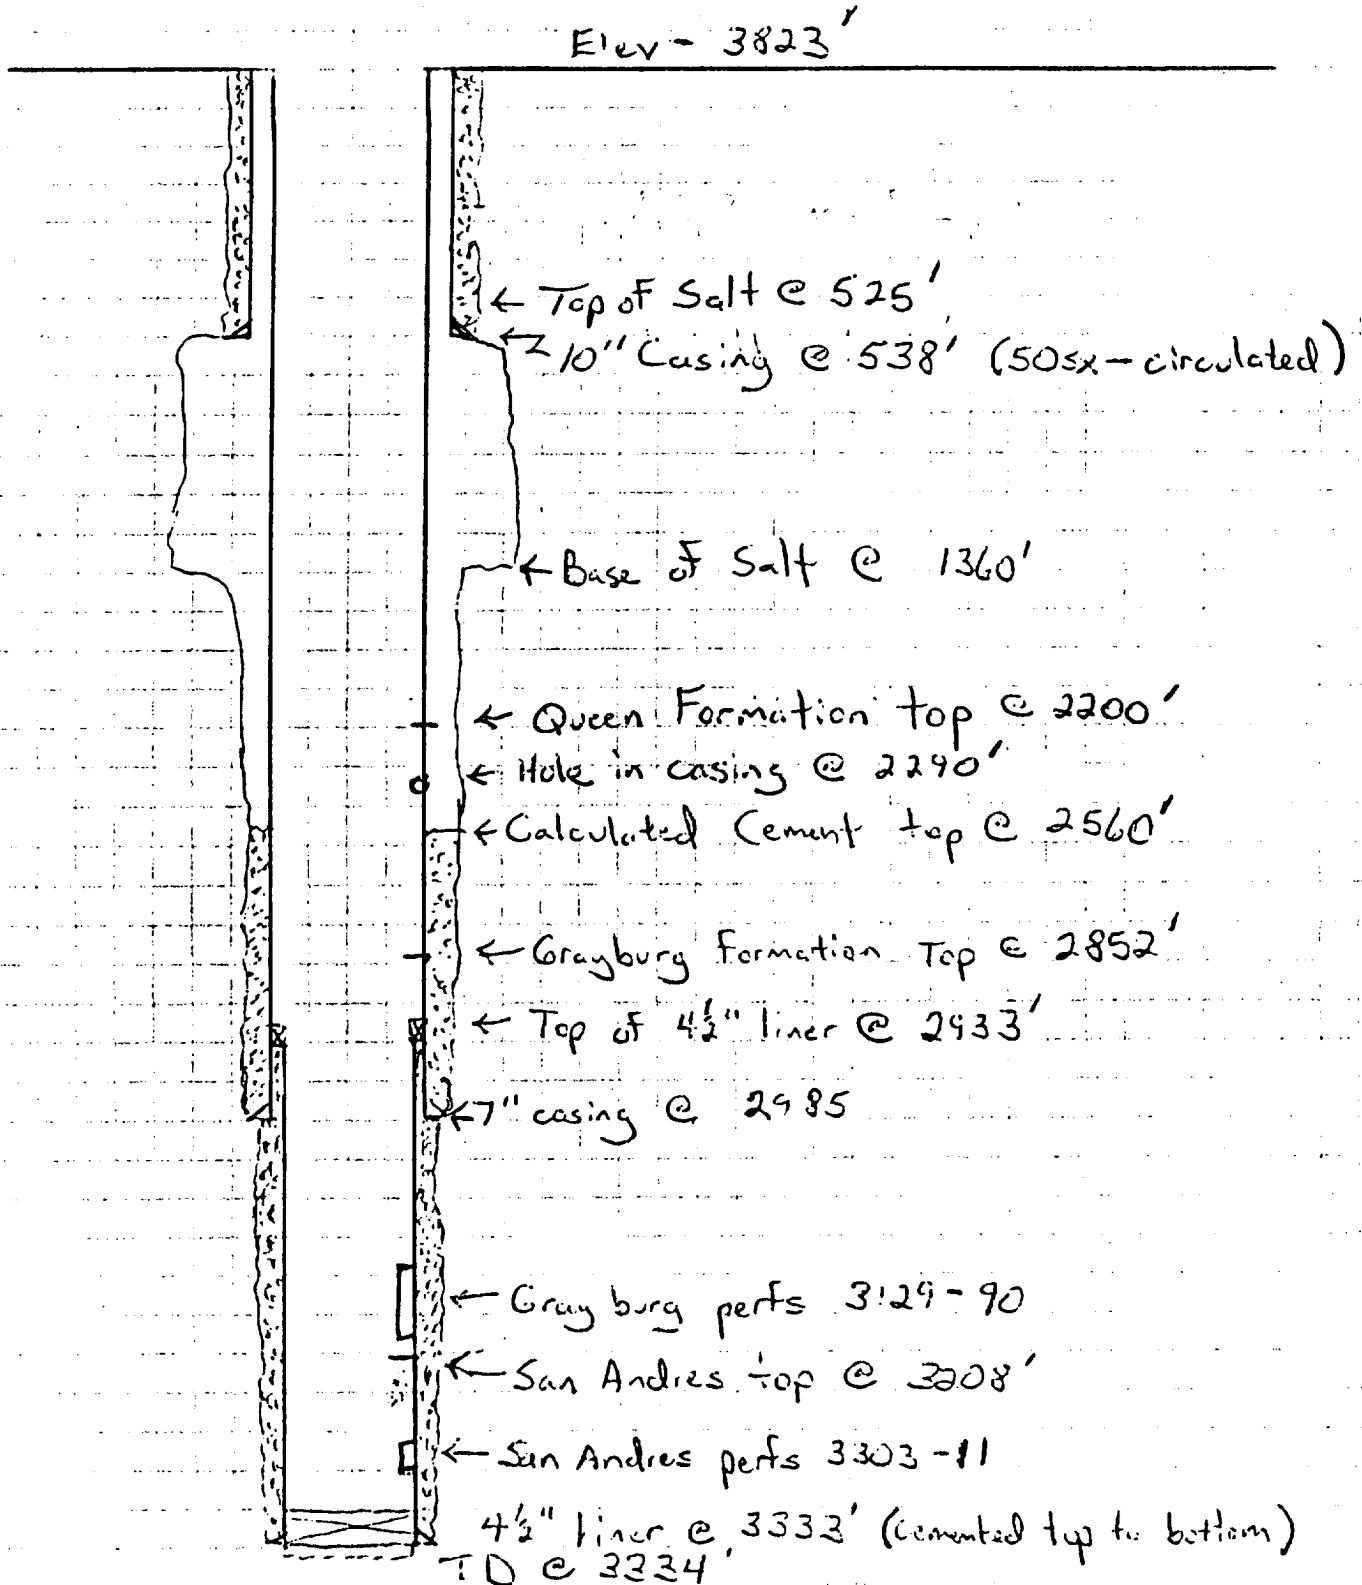 Elev - 3823'
← Top of Salt @ 525'
10" Casing @ 538' (50sx - circulated)
← Base of Salt @ 1360'
← Queen Formation top @ 2200'
← Hole in casing @ 2290'
← Calculated Cement top @ 2560'
← Grayburg Formation Top @ 2852'
← Top of 4½" liner @ 2933'
← 7" casing @ 2985
← Grayburg perfs 3129-90
← San Andres top @ 3208'
← San Andres perfs 3303-11
4½" liner @ 3333' (cemented top to bottom)
TD @ 3334'